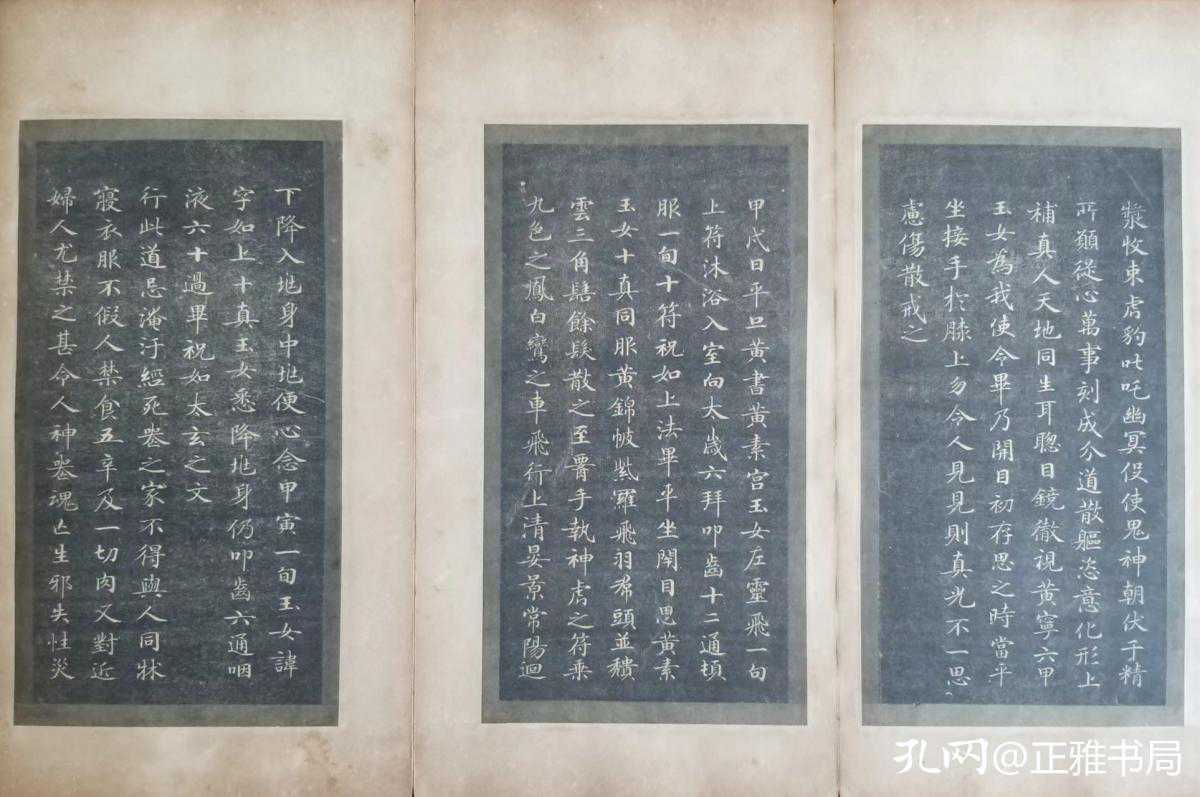 漿收束虎豹叱吒幽冥役使鬼神朝伏千精
所願從心萬事刻成分道散軀恣意化形上
補真人天地同生耳聰目鏡徹視黃寧六甲
玉女為我使令畢乃開目初存思之時當平
坐接手於膝上勿令人見見則真光不一思
慮傷散戒之
甲戌日平旦黃書黃素宮玉女左靈飛一旬
上符沐浴入室向太歲六拜叩齒十二通頓
服一旬十符祝如上法畢平坐閉目思黃素
玉女十真同服黃錦帔紫羅飛羽帬頭並穨
雲三角髻餘髮散之至霄手執神虎之符乘
九色之鳳白鸞之車飛行上清晏景常陽迴
下降入兆身中兆便心念甲寅一旬玉女諱
字如上十真玉女悉降兆身仍叩齒六通咽
液六十過畢祝如太玄之文
行此道忌淹汙經死喪之家不得與人同牀
寢衣服不假人禁食五辛及一切肉又對近
婦人尤禁之甚令人神喪魂亡生邪失性災
孔网@正雅书局